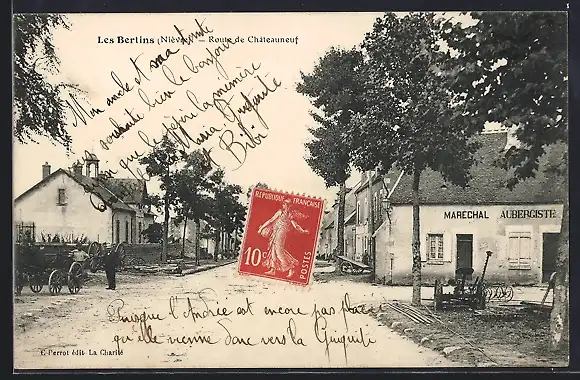 Les Bertins (Nièvre) – Route de Châteauneuf
Mon oncle et ma tante
souhaite bien le bonjour
que à la
Maria Guiguite
et Bibi
RÉPUBLIQUE FRANÇAISE
10c
POSTES
MARÉCHAL AUBERGISTE
Puisque l'Andrée est encore pas placé
qu'elle vienne donc vers la Guiguite
E. Perrot édit. La Charité